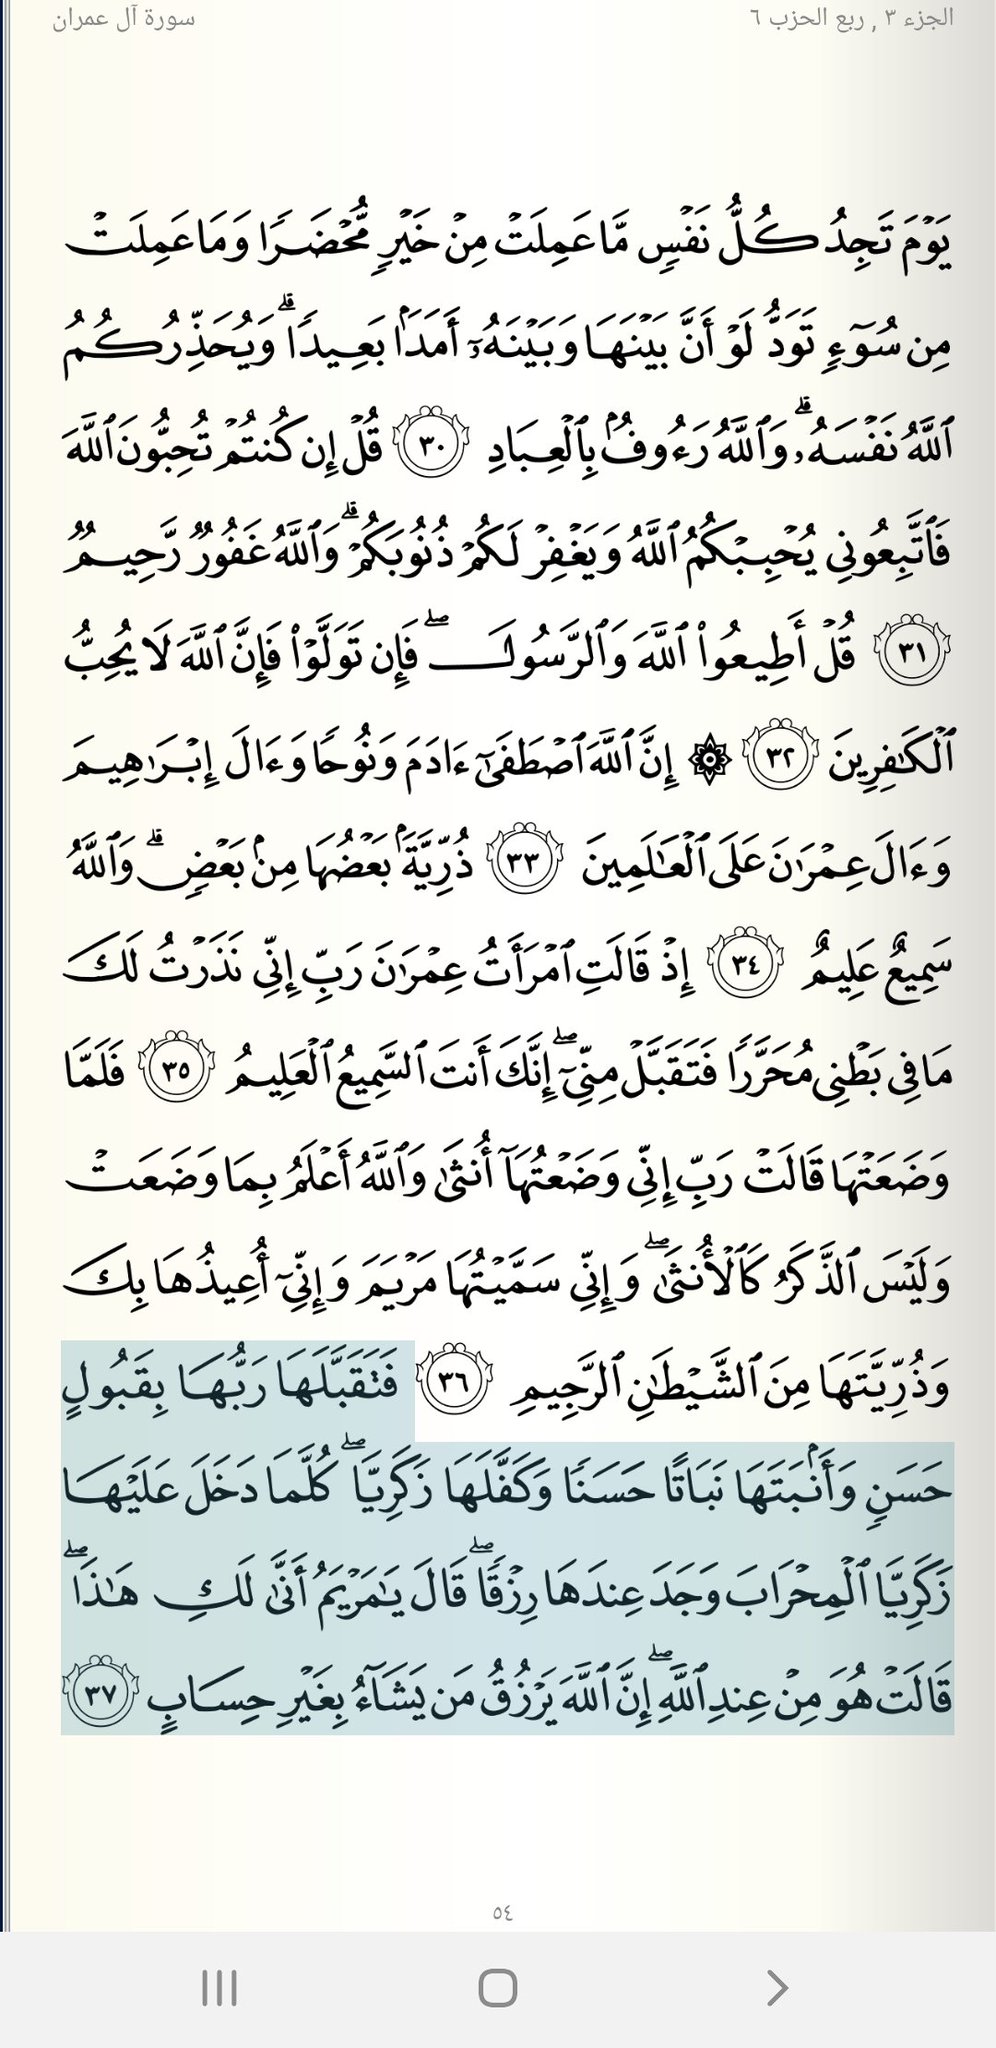 الجزء ٣ , ربع الحزب ٦
سورة آل عمران
يَوْمَ تَجِدُ كُلُّ نَفْسٍ مَّا عَمِلَتْ مِنْ خَيْرٍ مُّحْضَرًا وَمَا عَمِلَتْ
مِن سُوٓءٍ تَوَدُّ لَوْ أَنَّ بَيْنَهَا وَبَيْنَهُۥٓ أَمَدًۢا بَعِيدًا ۗ وَيُحَذِّرُكُمُ
ٱللَّهُ نَفْسَهُۥ ۗ وَٱللَّهُ رَءُوفٌۢ بِٱلْعِبَادِ ٣٠ قُلْ إِن كُنتُمْ تُحِبُّونَ ٱللَّهَ
فَٱتَّبِعُونِي يُحْبِبْكُمُ ٱللَّهُ وَيَغْفِرْ لَكُمْ ذُنُوبَكُمْ ۗ وَٱللَّهُ غَفُورٌ رَّحِيمٌ
٣١ قُلْ أَطِيعُوا۟ ٱللَّهَ وَٱلرَّسُولَ ۖ فَإِن تَوَلَّوْا۟ فَإِنَّ ٱللَّهَ لَا يُحِبُّ
ٱلْكَٰفِرِينَ ٣٢ ۞ إِنَّ ٱللَّهَ ٱصْطَفَىٰٓ ءَادَمَ وَنُوحًا وَءَالَ إِبْرَٰهِيمَ
وَءَالَ عِمْرَٰنَ عَلَى ٱلْعَٰلَمِينَ ٣٣ ذُرِّيَّةًۢ بَعْضُهَا مِنۢ بَعْضٍ ۗ وَٱللَّهُ
سَمِيعٌ عَلِيمٌ ٣٤ إِذْ قَالَتِ ٱمْرَأَتُ عِمْرَٰنَ رَبِّ إِنِّي نَذَرْتُ لَكَ
مَا فِي بَطْنِي مُحَرَّرًا فَتَقَبَّلْ مِنِّيٓ ۖ إِنَّكَ أَنتَ ٱلسَّمِيعُ ٱلْعَلِيمُ ٣٥ فَلَمَّا
وَضَعَتْهَا قَالَتْ رَبِّ إِنِّي وَضَعْتُهَآ أُنثَىٰ وَٱللَّهُ أَعْلَمُ بِمَا وَضَعَتْ
وَلَيْسَ ٱلذَّكَرُ كَٱلْأُنثَىٰ ۖ وَإِنِّي سَمَّيْتُهَا مَرْيَمَ وَإِنِّيٓ أُعِيذُهَا بِكَ
وَذُرِّيَّتَهَا مِنَ ٱلشَّيْطَٰنِ ٱلرَّجِيمِ ٣٦ فَتَقَبَّلَهَا رَبُّهَا بِقَبُولٍ
حَسَنٍ وَأَنۢبَتَهَا نَبَاتًا حَسَنًا وَكَفَّلَهَا زَكَرِيَّا ۖ كُلَّمَا دَخَلَ عَلَيْهَا
زَكَرِيَّا ٱلْمِحْرَابَ وَجَدَ عِندَهَا رِزْقًا ۖ قَالَ يَٰمَرْيَمُ أَنَّىٰ لَكِ هَٰذَا ۖ
قَالَتْ هُوَ مِنْ عِندِ ٱللَّهِ ۖ إِنَّ ٱللَّهَ يَرْزُقُ مَن يَشَآءُ بِغَيْرِ حِسَابٍ ٣٧
٥٤